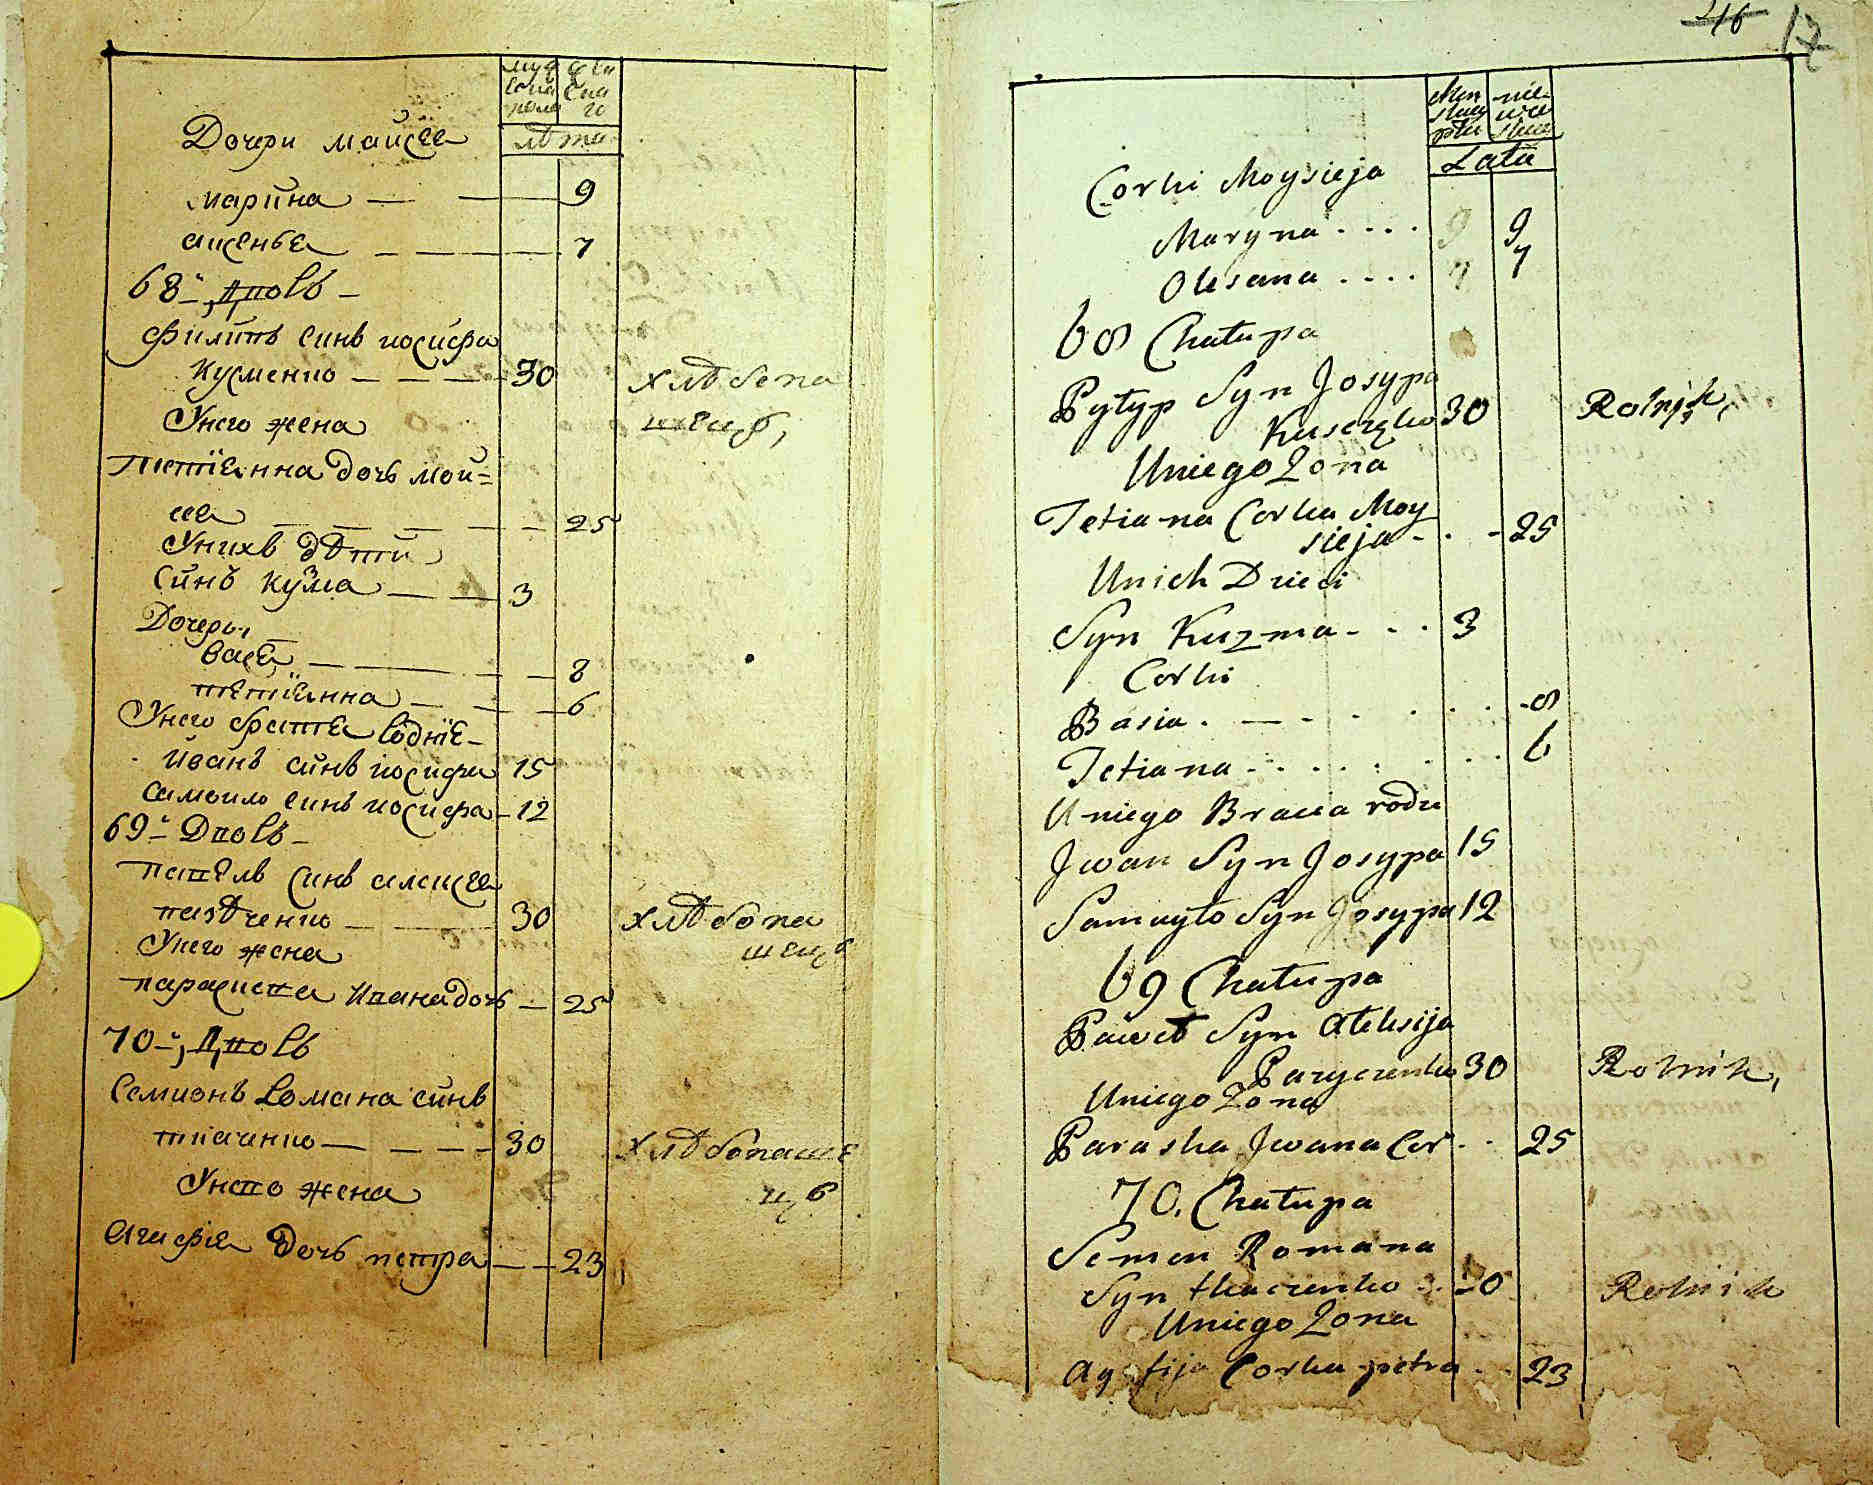 муж жен
ска ска
пола го
лѣта
Дочери Мойсея
Марина — — 9
Ксенья — — 7
68й Дворъ
Филипъ синъ иосифа
Кусменко — — — 30 хлѣбопа
Унего жена шецъ,
Тетіянна дочь Мои=
сея — — — — 25
Унихъ дѣти
Синъ Кузма — — 3
Дочеры
Вася — — — 8
тетіянна — — — 6
Унего братья родніе
Иванъ синъ иосифа 15
Самоило синъ иосифа — 12
69й Дворъ
Павелъ Синъ алексея
— — 30 хлѣбопа
Унего жена шецъ
параскива Ивана дочь — 25
70й, Дворъ
Семионъ Романа синъ
ткаченко — — — 30 хлѣбопаше
Унево жена цъ
Агафія Дочь петра — — 23
216 17
Men nie
skiey wie
płci skiey
Lata
Corki Moysieja
Maryna . . . . 9 9
Oksana . . . . 7 7
68 Chałupa
Pyłyp Syn Josypa
Kusczęko 30 Rolnik,
Uniego Żona
Tetiana Corka Moy
sieja - . - 25
Unich Dzieci
Syn Kuzma - . . 3
Corki
Basia . — - . . . . - 8
Tetiana . . . . . . . . 6
Uniego Bracia rodu
Jwan Syn Josypa 15
Samuyło Syn Josypa 12
69 Chałupa
Paweł Syn Ałeksija
Pazyczenko 30 Rolnik,
Uniego Żona
Paraska Jwana Cor . . 25
70. Chałupa
Semen Romana
Syn tkaczenko . . 30 Rolnik
Uniego Żona
Agafija Corka petra . . 23